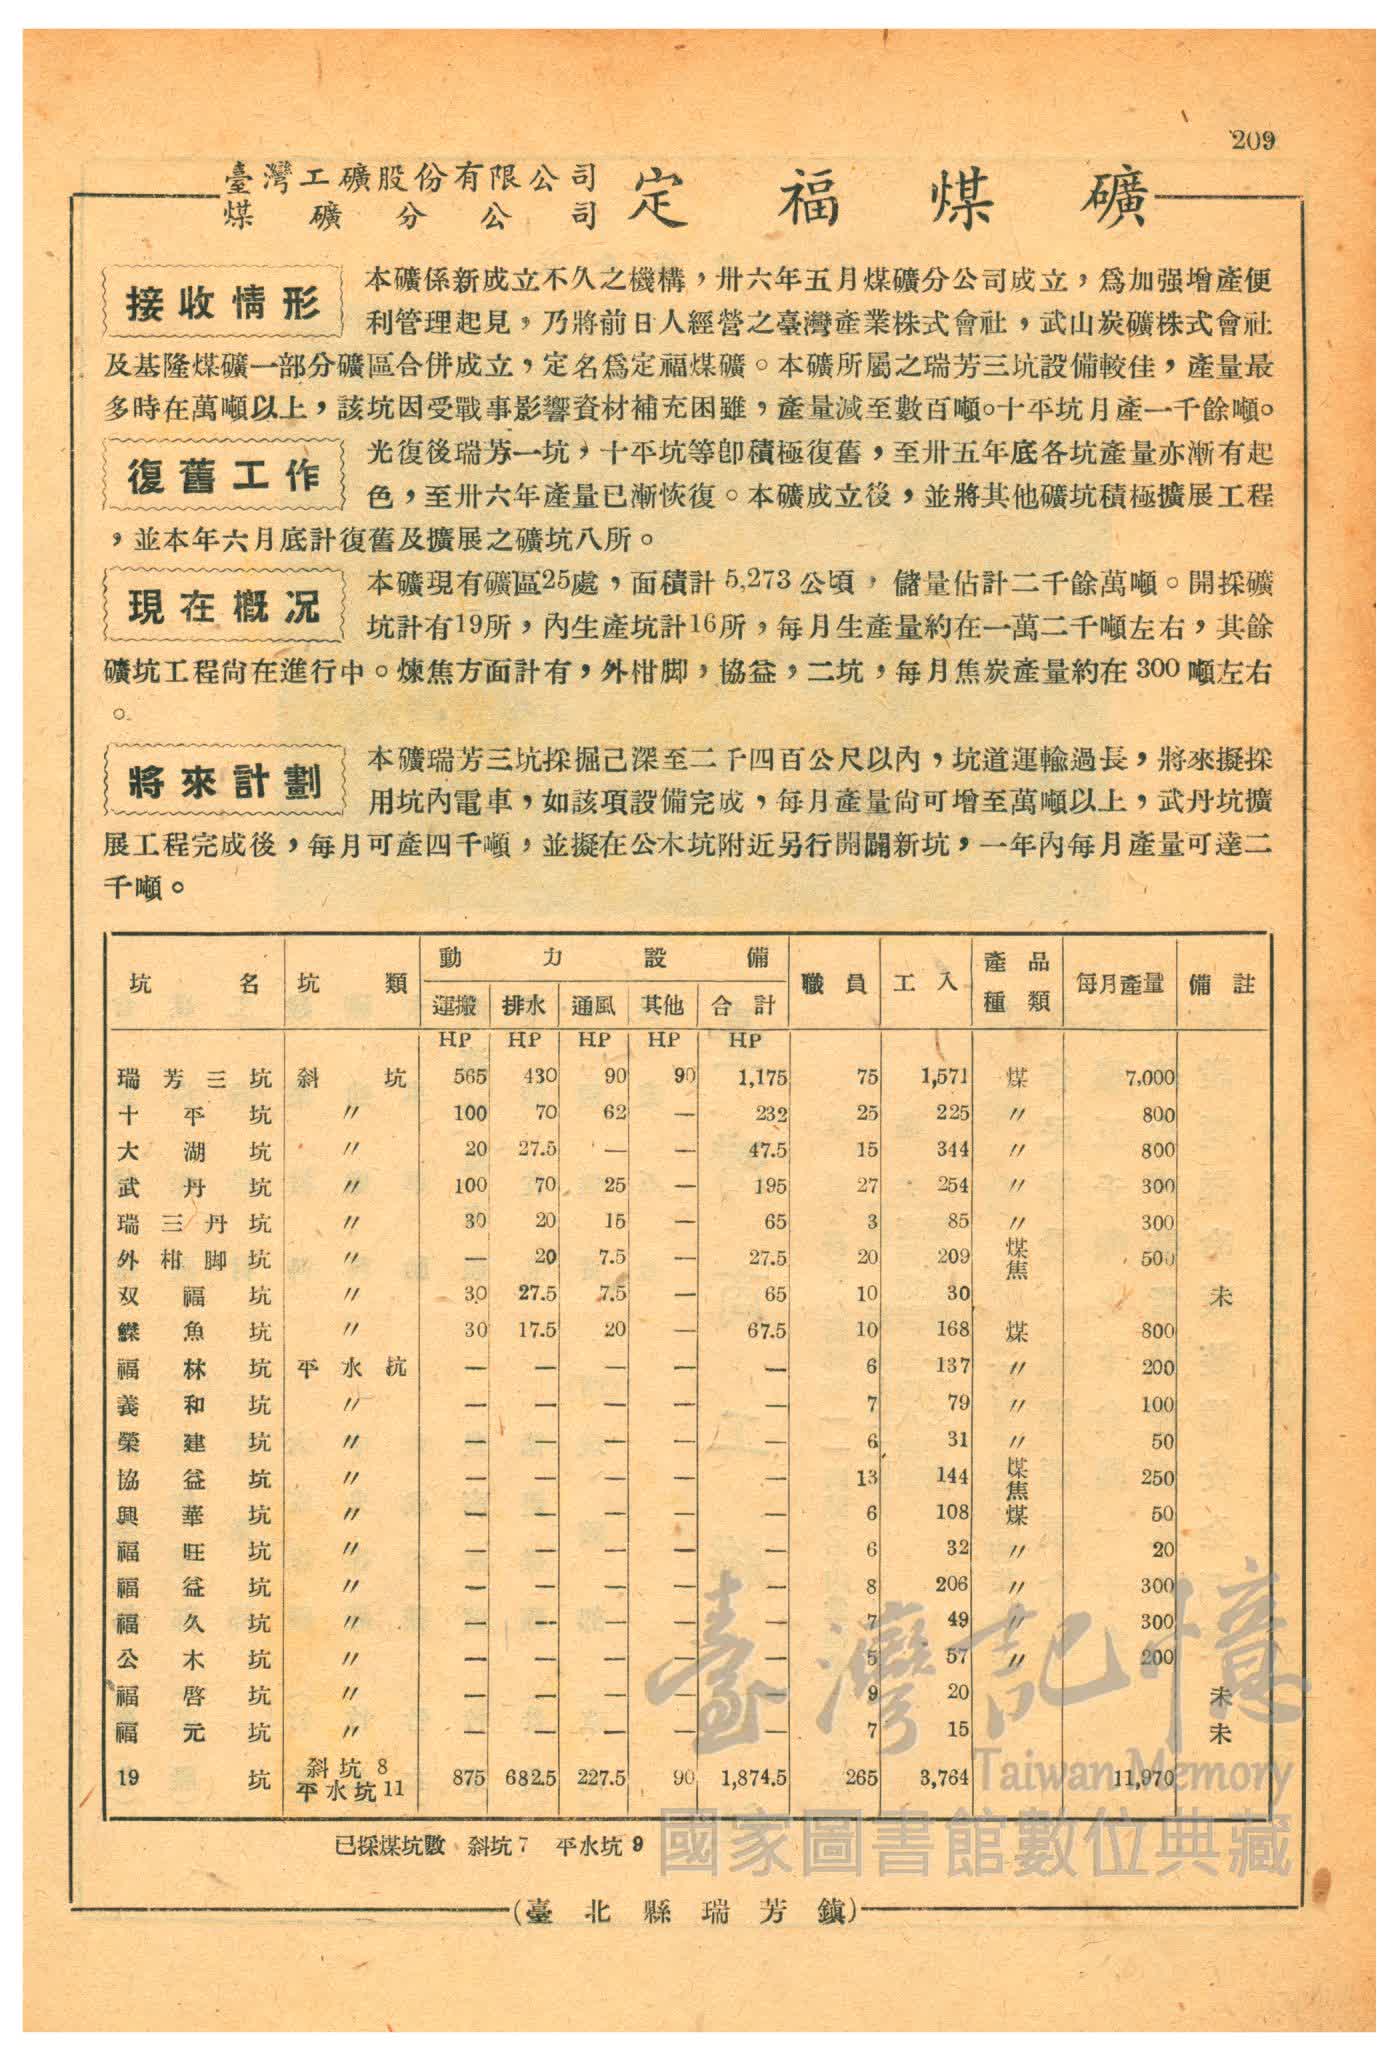 209
臺灣工礦股份有限公司
煤礦分公司
定福煤礦
接收情形
本礦係新成立不久之機構，卅六年五月煤礦分公司成立，爲加强增產便
利管理起見，乃將前日人經營之臺灣產業株式會社，武山炭礦株式會社
及基隆煤礦一部分礦區合併成立，定名爲定福煤礦。本礦所屬之瑞芳三坑設備較佳，產量最
多時在萬噸以上，該坑因受戰事影響資材補充困難，產量減至數百噸。十平坑月產一千餘噸。
復舊工作
光復後瑞芳一坑，十平坑等卽積極復舊，至卅五年底各坑產量亦漸有起
色，至卅六年產量已漸恢復。本礦成立後，並將其他礦坑積極擴展工程
，並本年六月底計復舊及擴展之礦坑八所。
現在槪况
本礦現有礦區25處，面積計5,273公頃，儲量估計二千餘萬噸。開採礦
坑計有19所，內生產坑計16所，每月生產量約在一萬二千噸左右，其餘
礦坑工程尙在進行中。煉焦方面計有，外柑脚，協益，二坑，每月焦炭產量約在300噸左右
。
將來計劃
本礦瑞芳三坑採掘己深至二千四百公尺以內，坑道運輸過長，將來擬採
用坑內電車，如該項設備完成，每月產量尙可增至萬噸以上，武丹坑擴
展工程完成後，每月可產四千噸，並擬在公木坑附近另行開闢新坑，一年內每月產量可達二
千噸。
坑名 坑類 動力設備 職員 工人 產品種類 每月產量 備註
運搬 排水 通風 其他 合計
HP HP HP HP HP
瑞芳三坑 斜坑 565 430 90 90 1,175 75 1,571 煤 7,000
十平坑 〃 100 70 62 — 232 25 225 〃 800
大湖坑 〃 20 27.5 — — 47.5 15 344 〃 800
武丹坑 〃 100 70 25 — 195 27 254 〃 300
瑞三丹坑 〃 30 20 15 — 65 3 85 〃 300
外柑脚坑 〃 — 20 7.5 — 27.5 20 209 煤焦 500
双福坑 〃 30 27.5 7.5 — 65 10 30 未
鰈魚坑 〃 30 17.5 20 — 67.5 10 168 煤 800
福林坑 平水坑 — — — — — 6 137 〃 200
義和坑 〃 — — — — — 7 79 〃 100
榮建坑 〃 — — — — — 6 31 〃 50
協益坑 〃 — — — — — 13 144 煤焦 250
興華坑 〃 — — — — — 6 108 煤 50
福旺坑 〃 — — — — — 6 32 〃 20
福益坑 〃 — — — — — 8 206 〃 300
福久坑 〃 — — — — — 7 49 〃 300
公木坑 〃 — — — — — 5 57 〃 200
福啓坑 〃 — — — — — 9 20 未
福元坑 〃 — — — — — 7 15 未
19坑 斜坑8 平水坑11 875 682.5 227.5 90 1,874.5 265 3,764 11,970
已採煤坑數 斜坑7 平水坑9
(臺北縣瑞芳鎮)
臺灣記憶
Taiwan Memory
國家圖書館數位典藏